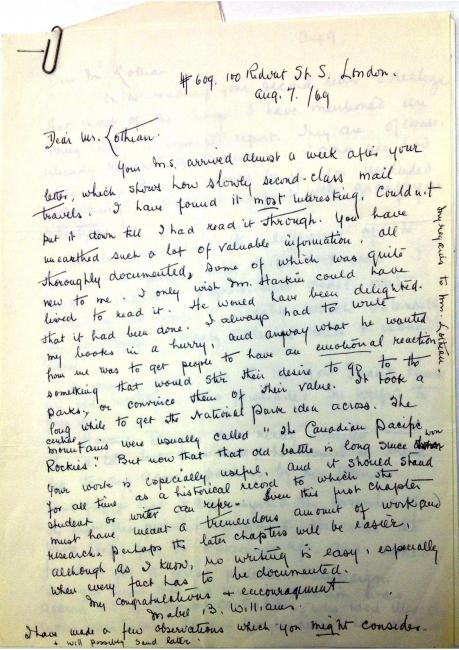 #609, 100 Ridout St. S., London.
Aug. 7. /69
Dear Mr. Lothian.
Your M.S. arrived almost a week after your
letter, which shows how slowly second-class mail
travels. I have found it most interesting. Couldn't
put it down till I had read it through. You have
unearthed such a lot of valuable information, all
thoroughly documented, some of which was quite
new to me. I only wish Mr. Harkin could have
lived to read it. He would have been delighted
that it had been done. I always had to write
my books in a hurry, and anyway what he wanted
from me was to get people to have an emotional reaction
something that would stir their desire to go to the
parks, or convince them of their value. It took a
long while to get the National Park idea across. The
mountains were usually called "The Canadian Pacific
Rockies". But now that that old battle is long since won
your work is especially useful, and it should stand
for all time as a historical record to which the
student or writer can refer. Even this first chapter
must have meant a tremendous amount of work and
research. perhaps the later chapters will be easier,
although, as I know, no writing is easy, especially
when every fact has to be documented.
My congratulations + encouragement
Mabel B. Williams.
I have made a few observations which you might consider.
+ will possibly send later.
My regards to Mrs. Lothian.